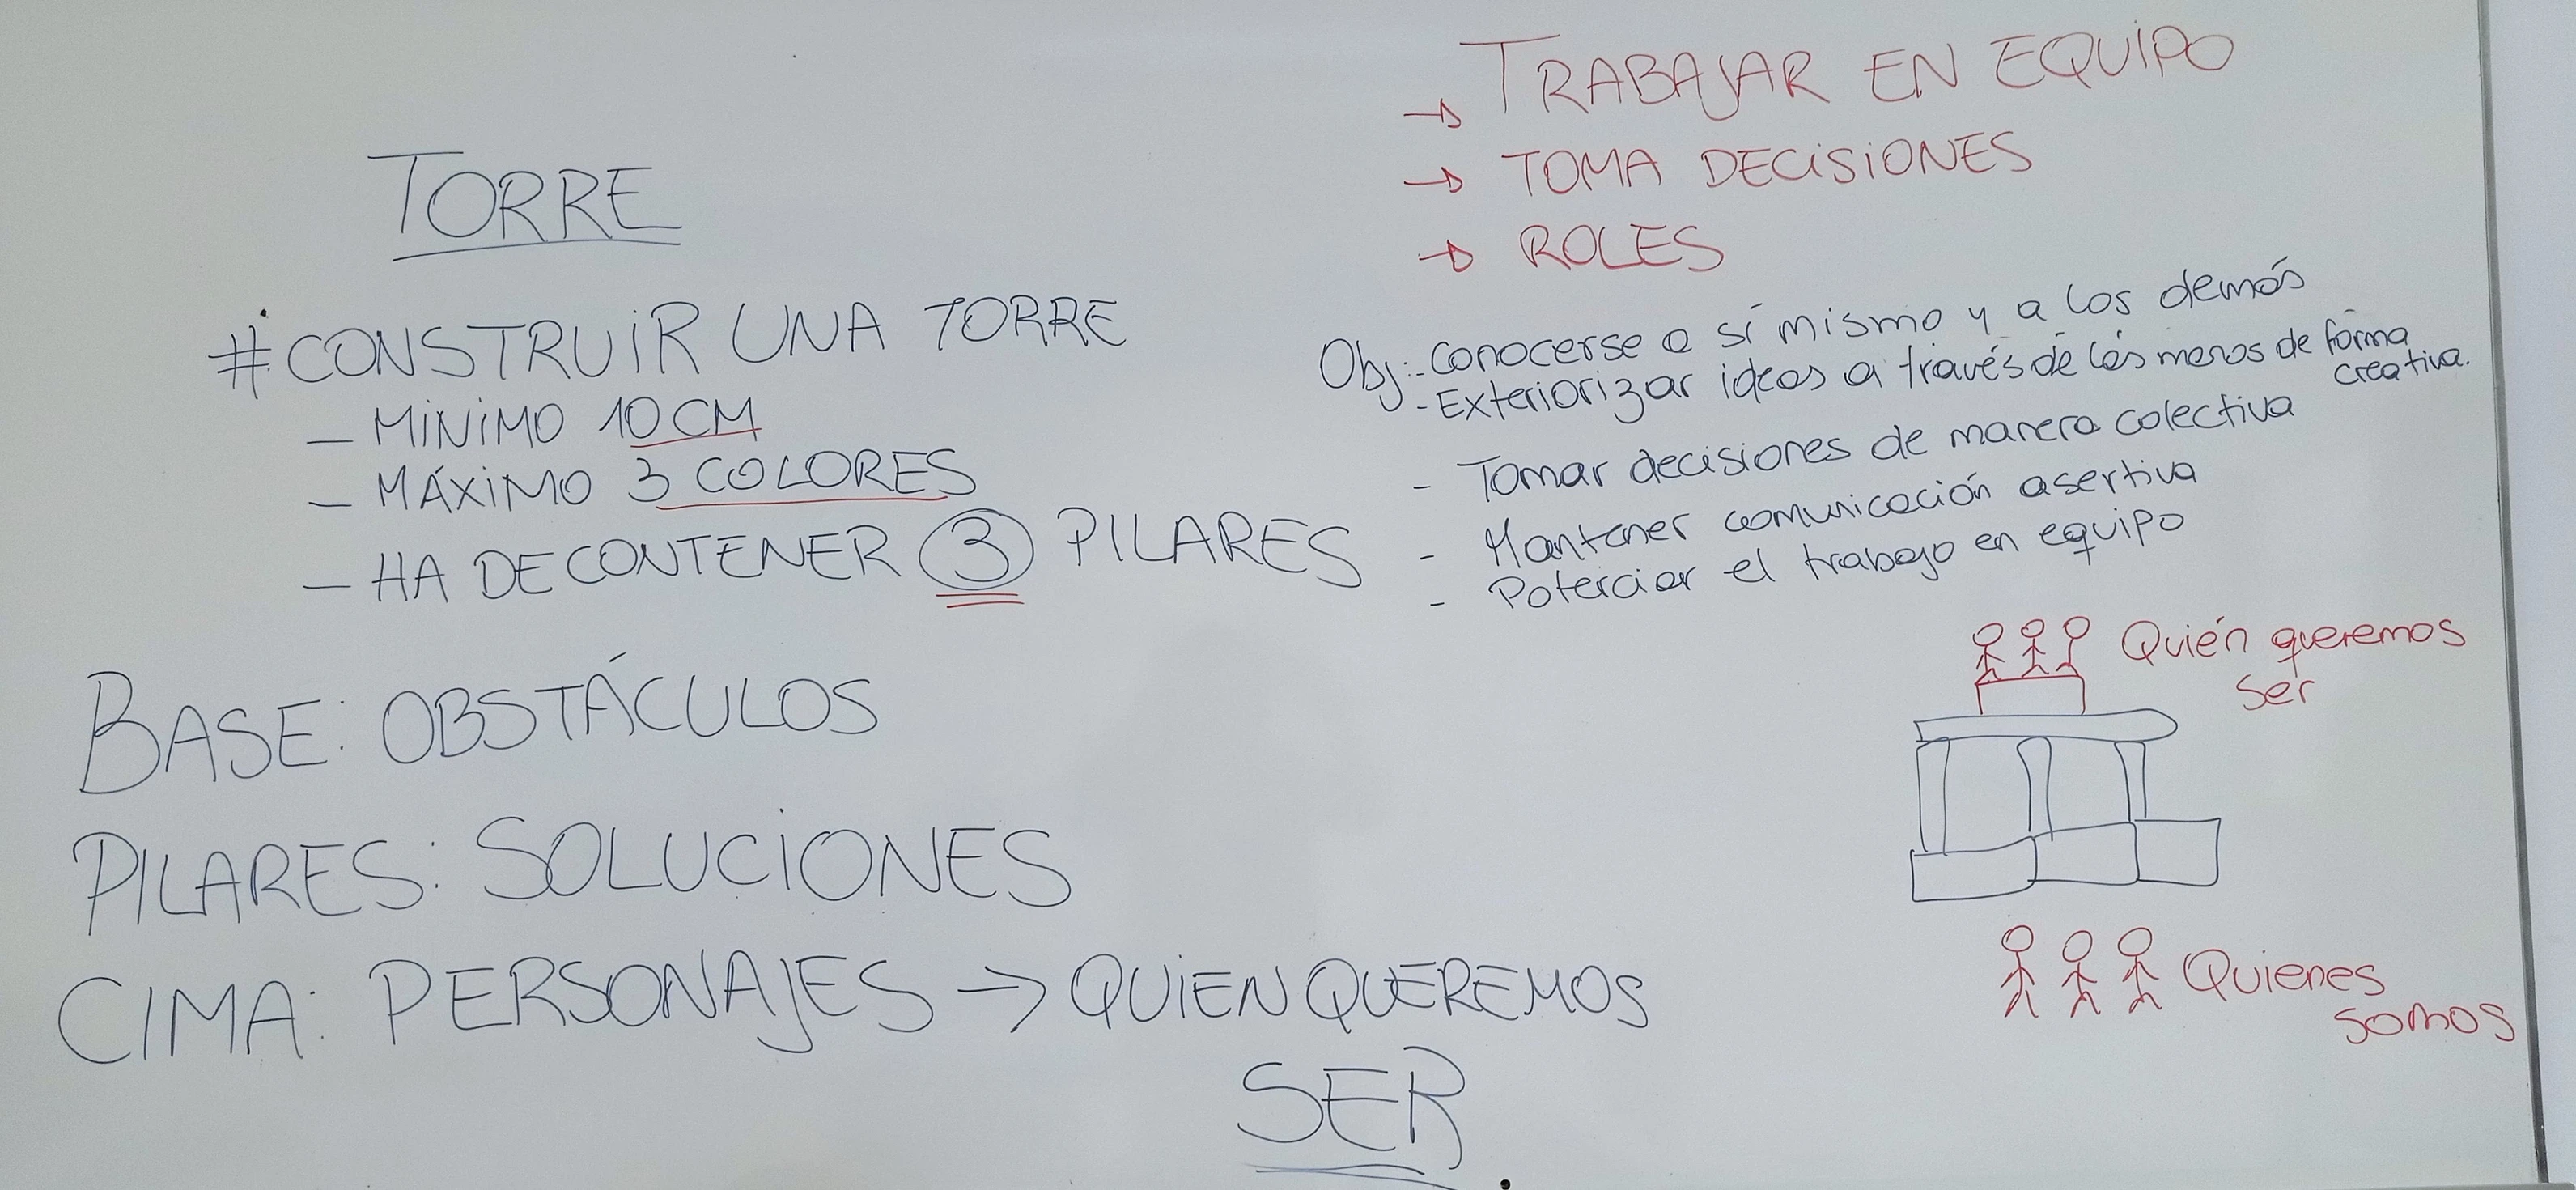 TORRE
# CONSTRUIR UNA TORRE
- MÍNIMO 10 CM
- MÁXIMO 3 COLORES
- HA DE CONTENER 3 PILARES
BASE: OBSTÁCULOS
PILARES: SOLUCIONES
CIMA: PERSONAJES → QUIEN QUEREMOS
SER
→ TRABAJAR EN EQUIPO
→ TOMA DECISIONES
→ ROLES
Obj:- Conocerse a sí mismo y a los demás
- Exteriorizar ideas a través de las manos de forma
creativa.
- Tomar decisiones de manera colectiva
- Mantener comunicación asertiva
- Potenciar el trabajo en equipo
Quién queremos
ser
Quienes
somos